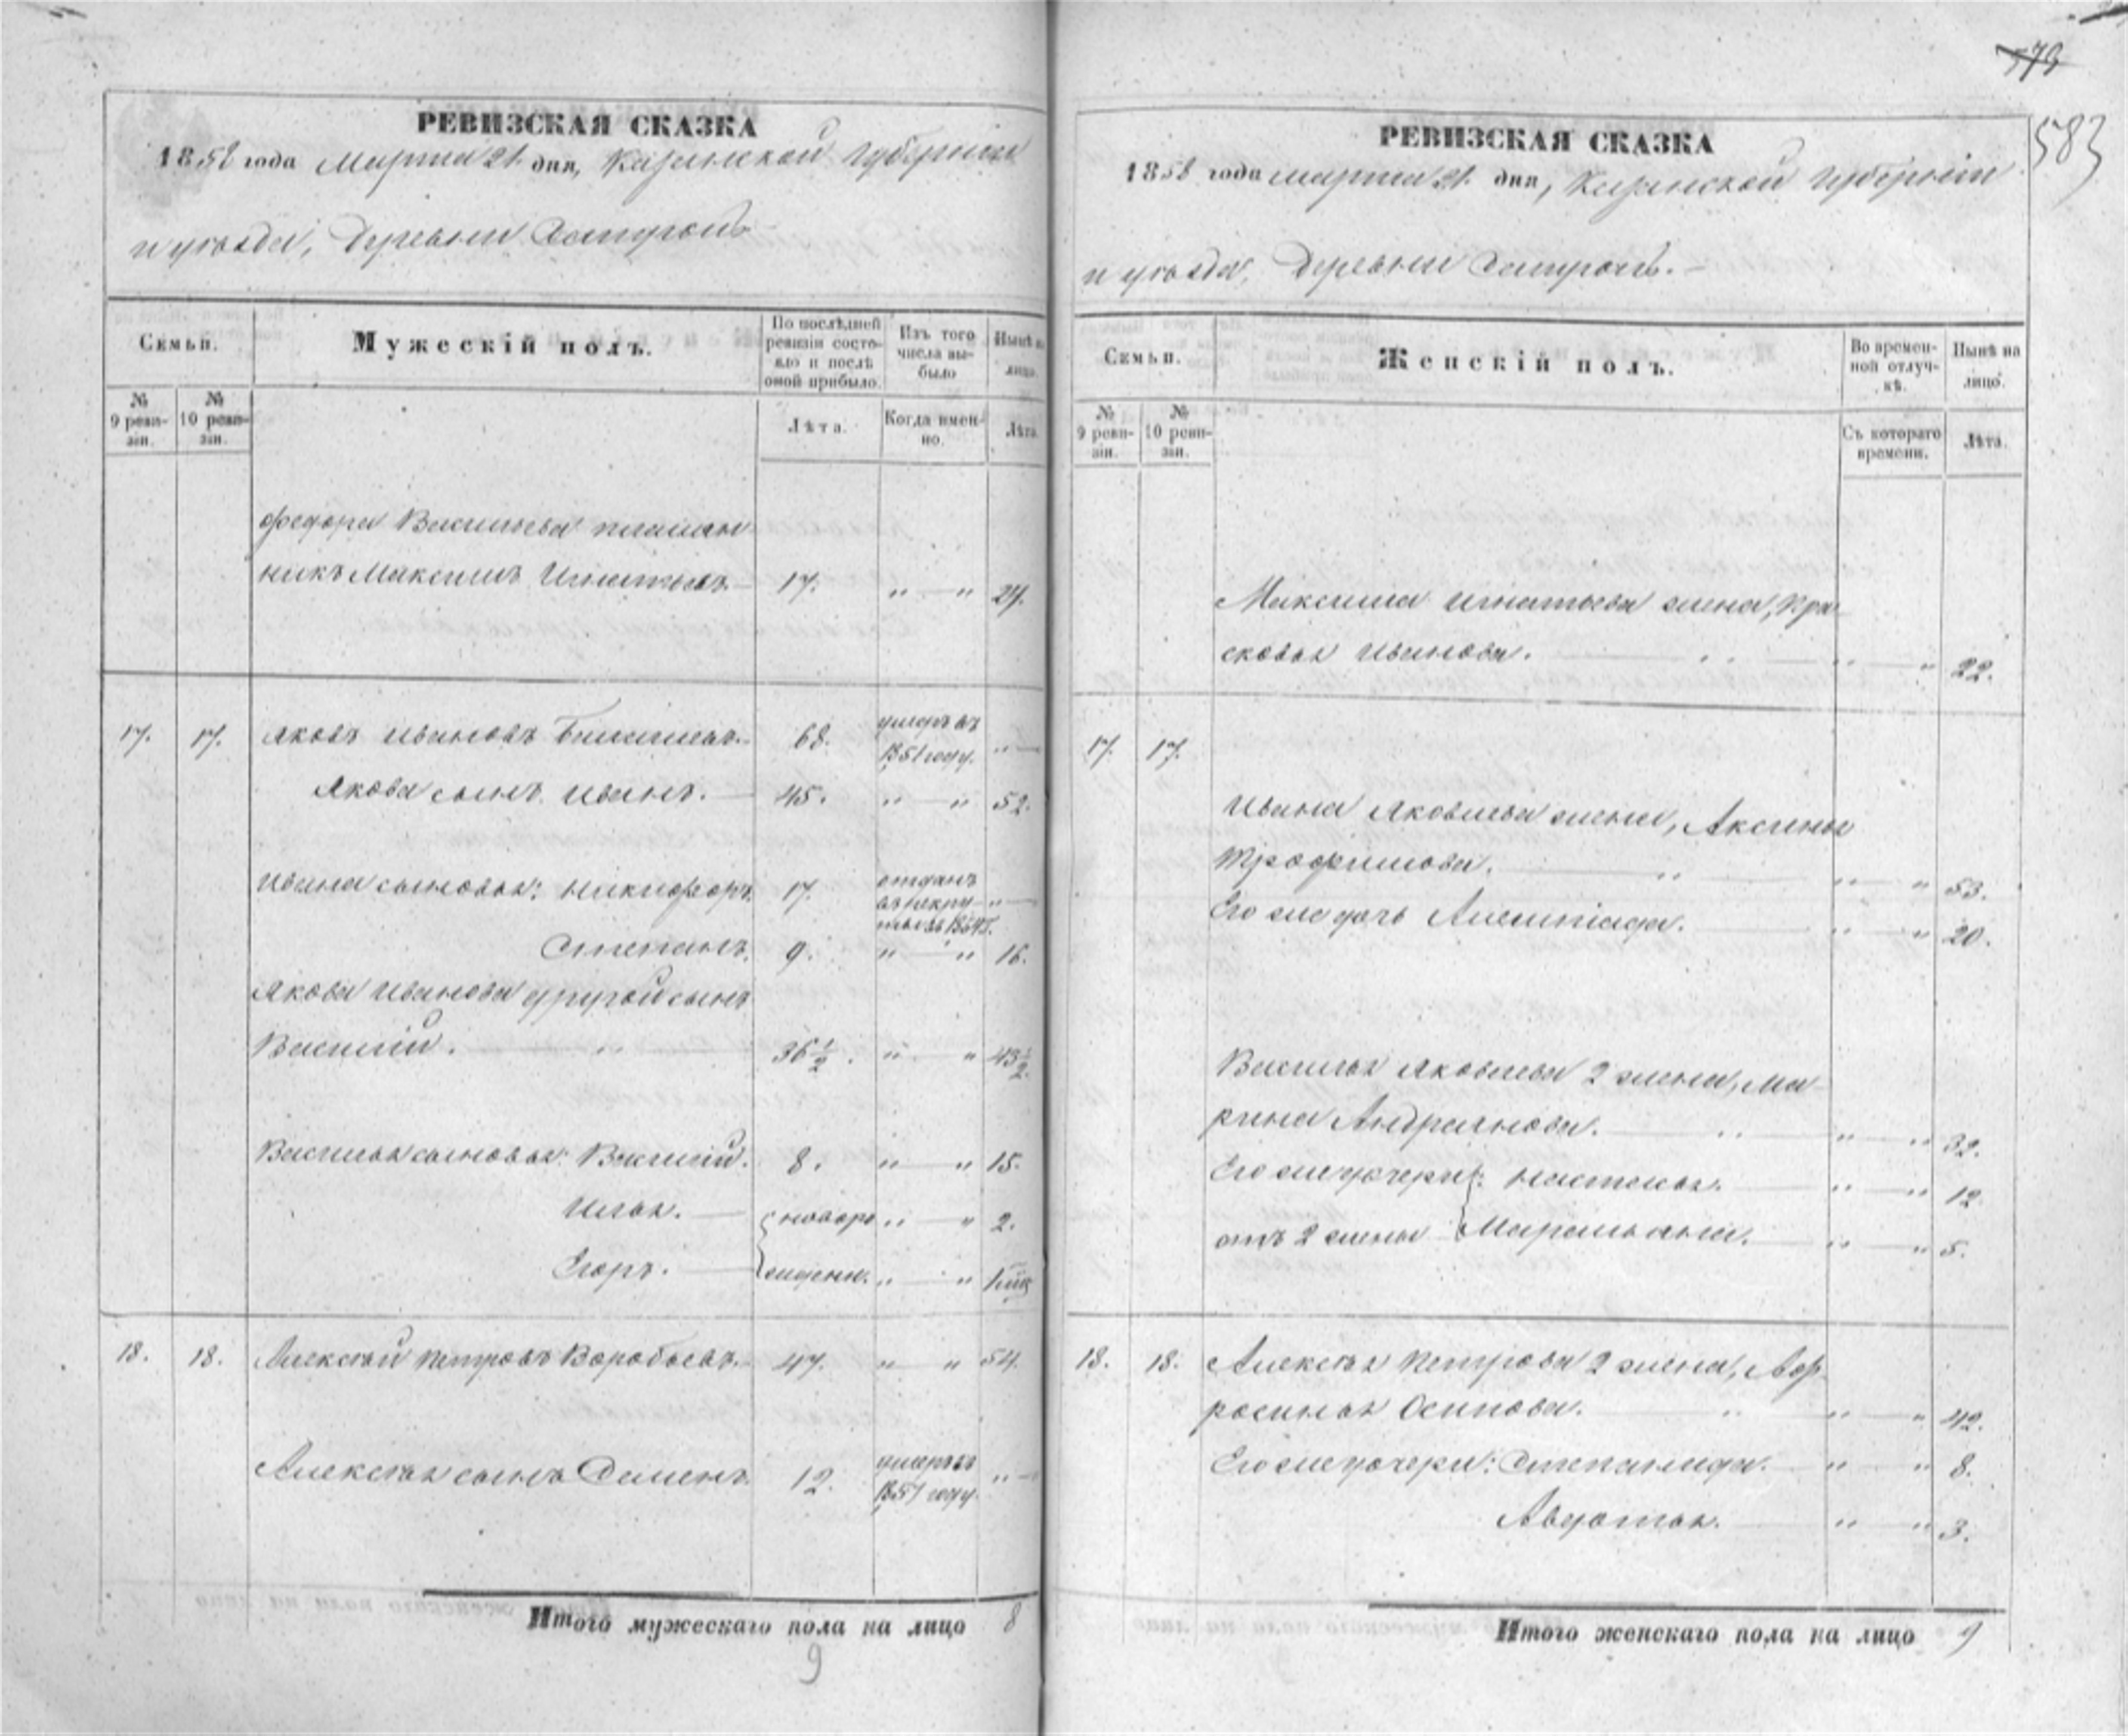 579
583
РЕВИЗСКАЯ СКАЗКА
1858 года Марта 21. дня, Казанской Губерніи
и уѣзда, Деревни
Семьи.
Мужескій полъ.
По послѣдней ревизіи состояло и послѣ оной прибыло.
Изъ того числа выбыло
Нынѣ на лицо.
№ 9 ревизіи.
№ 10 ревизіи.
Лѣта.
Когда именно.
Лѣта.
Федора Васильева племян-
никъ Максимъ Игнатьевъ. 17. " — " 24.
17. 17. Яковъ Ивановъ 68. умеръ въ 1851 году. " —
Якова сынъ Иванъ. 45. " — " 52.
Ивана сыновья: Никифоръ. 17. отданъ въ рекру-ты въ 1854 г. " —
Степанъ. 9. " — " 16.
Якова Иванова другой сынъ
Василій. 36½. " — " 43½.
Василья сыновья: Василій. 8. " — " 15.
Илья. — { новоро " — " 2.
Егоръ. — { жденн. " — "
18. 18. Алексѣй Петровъ Воробьевъ. 47. " — " 54.
Алексѣя сынъ Семенъ. 12. умеръ въ 1851 году. " —
Итого мужескаго пола на лицо 8
9
РЕВИЗСКАЯ СКАЗКА
1858 года марта 21. дня, Казанской Губерніи
и уѣзда, Деревни
Семьи.
Женскій полъ.
Во временной отлучкѣ.
Нынѣ на лицо.
№ 9 ревизіи.
№ 10 ревизіи.
Съ котораго времени.
Лѣта.
Максима Игнатьева жена, Пра-
сковья Иванова. " — " 22.
17. 17.
Ивана Яковлева жена, Аксинья
Трофимова. " — " 53.
Его же дочь " — " 20.
Василья Яковлева 2 жена, Ма-
рина Андриянова. " — " 32.
Его же дочери: Настасья. " — " 12.
отъ 2 жены Маремьяна. " — " 5.
18. 18. Алексѣя Петрова 2 жена, Аф-
росинья Осипова. " — " 42.
Его же дочери: Степанида. " — " 8.
Авдотья. " — " 3.
Итого женскаго пола на лицо 9